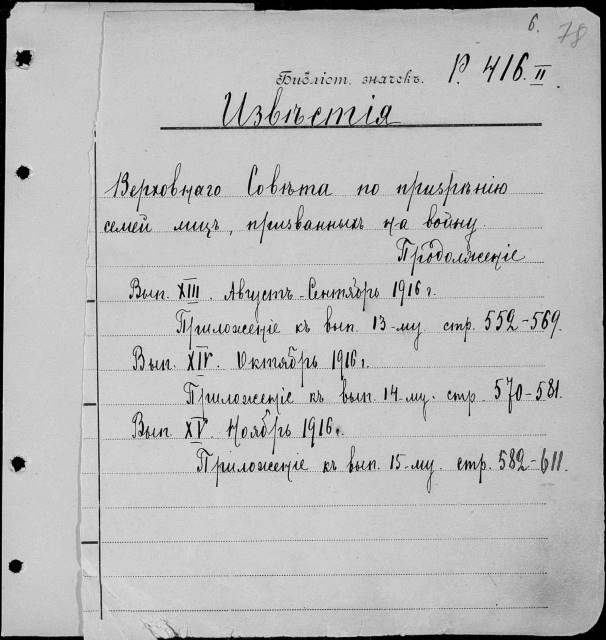 6. 78
Библіот. значекъ. Р. 416. II
Извѣстія
Верховнаго Совѣта по призрѣнію
семей лицъ, призванныхъ на войну.
Продолженіе
Вып. XIII. Августъ-Сентябрь 1916 г.
Приложеніе къ вып. 13-му. стр. 552-569.
Вып. XIV. Октябрь 1916 г.
Приложеніе къ вып. 14-му. стр. 570-581.
Вып. XV. Ноябрь 1916 г.
Приложеніе къ вып. 15-му. стр. 582-611.